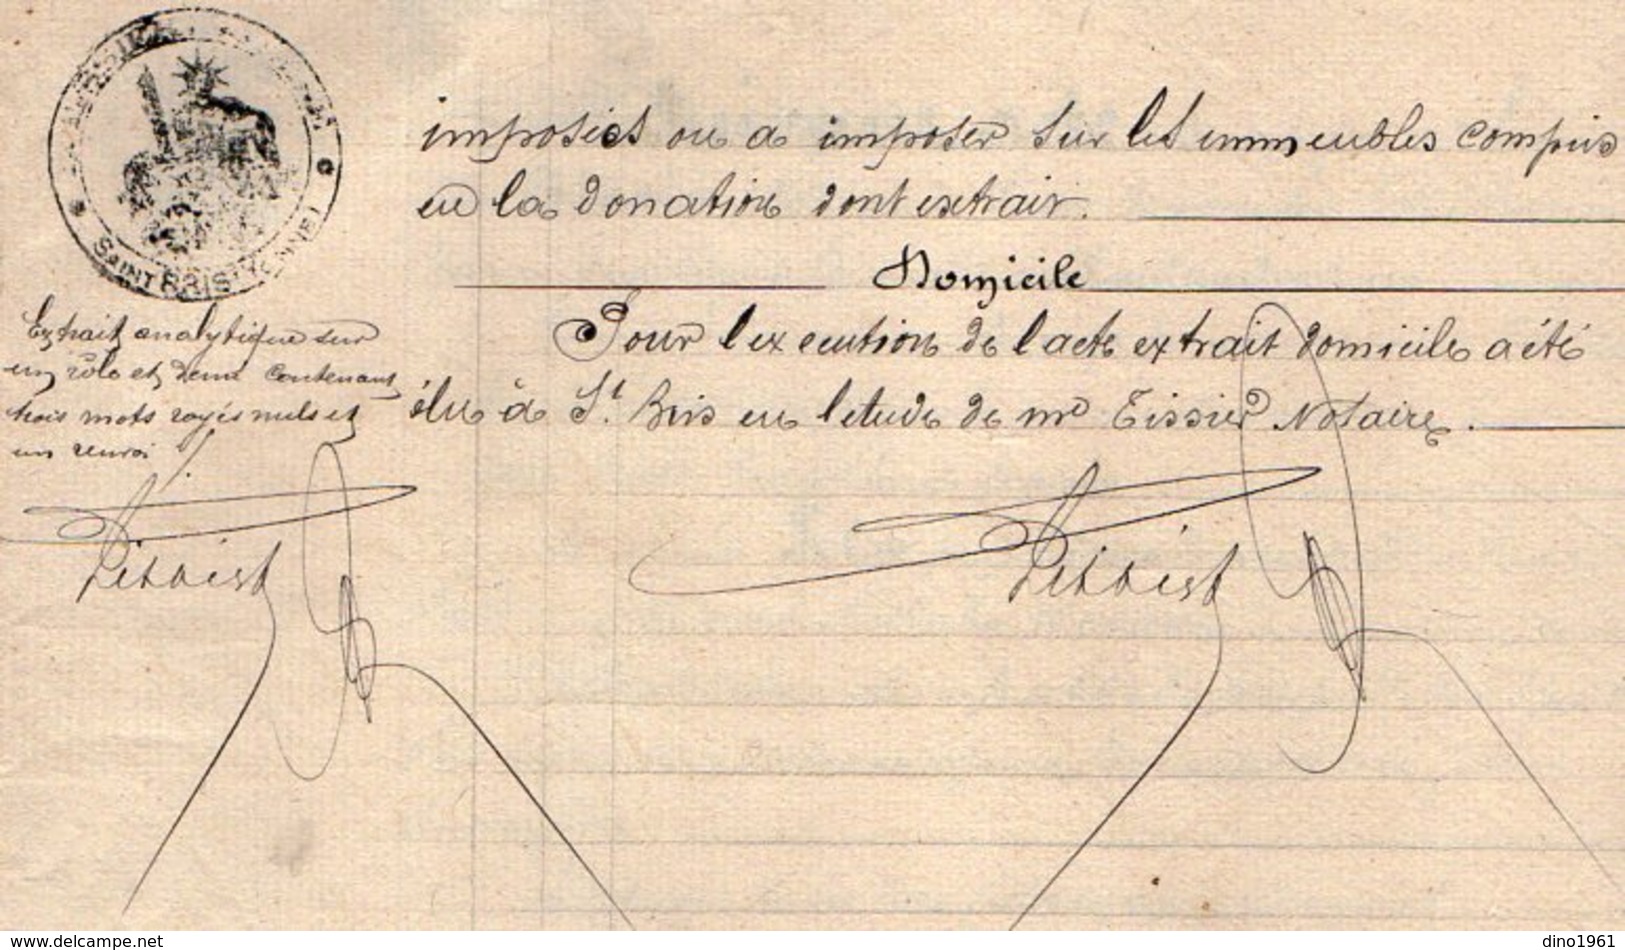 SAINT BRIS (YONNE)
imposées ou a imposer sur les immeubles compris
en la donation dont extrait.
Domicile
Pour l'execution de l'acte extrait domicile a été
élu à St. Bris en l'etude de me Tissier Notaire.
Extrait analytique sur
un rôle et demi contenant
trois mots rayés nuls et
un renvoi
www.delcampe.net
dino1961